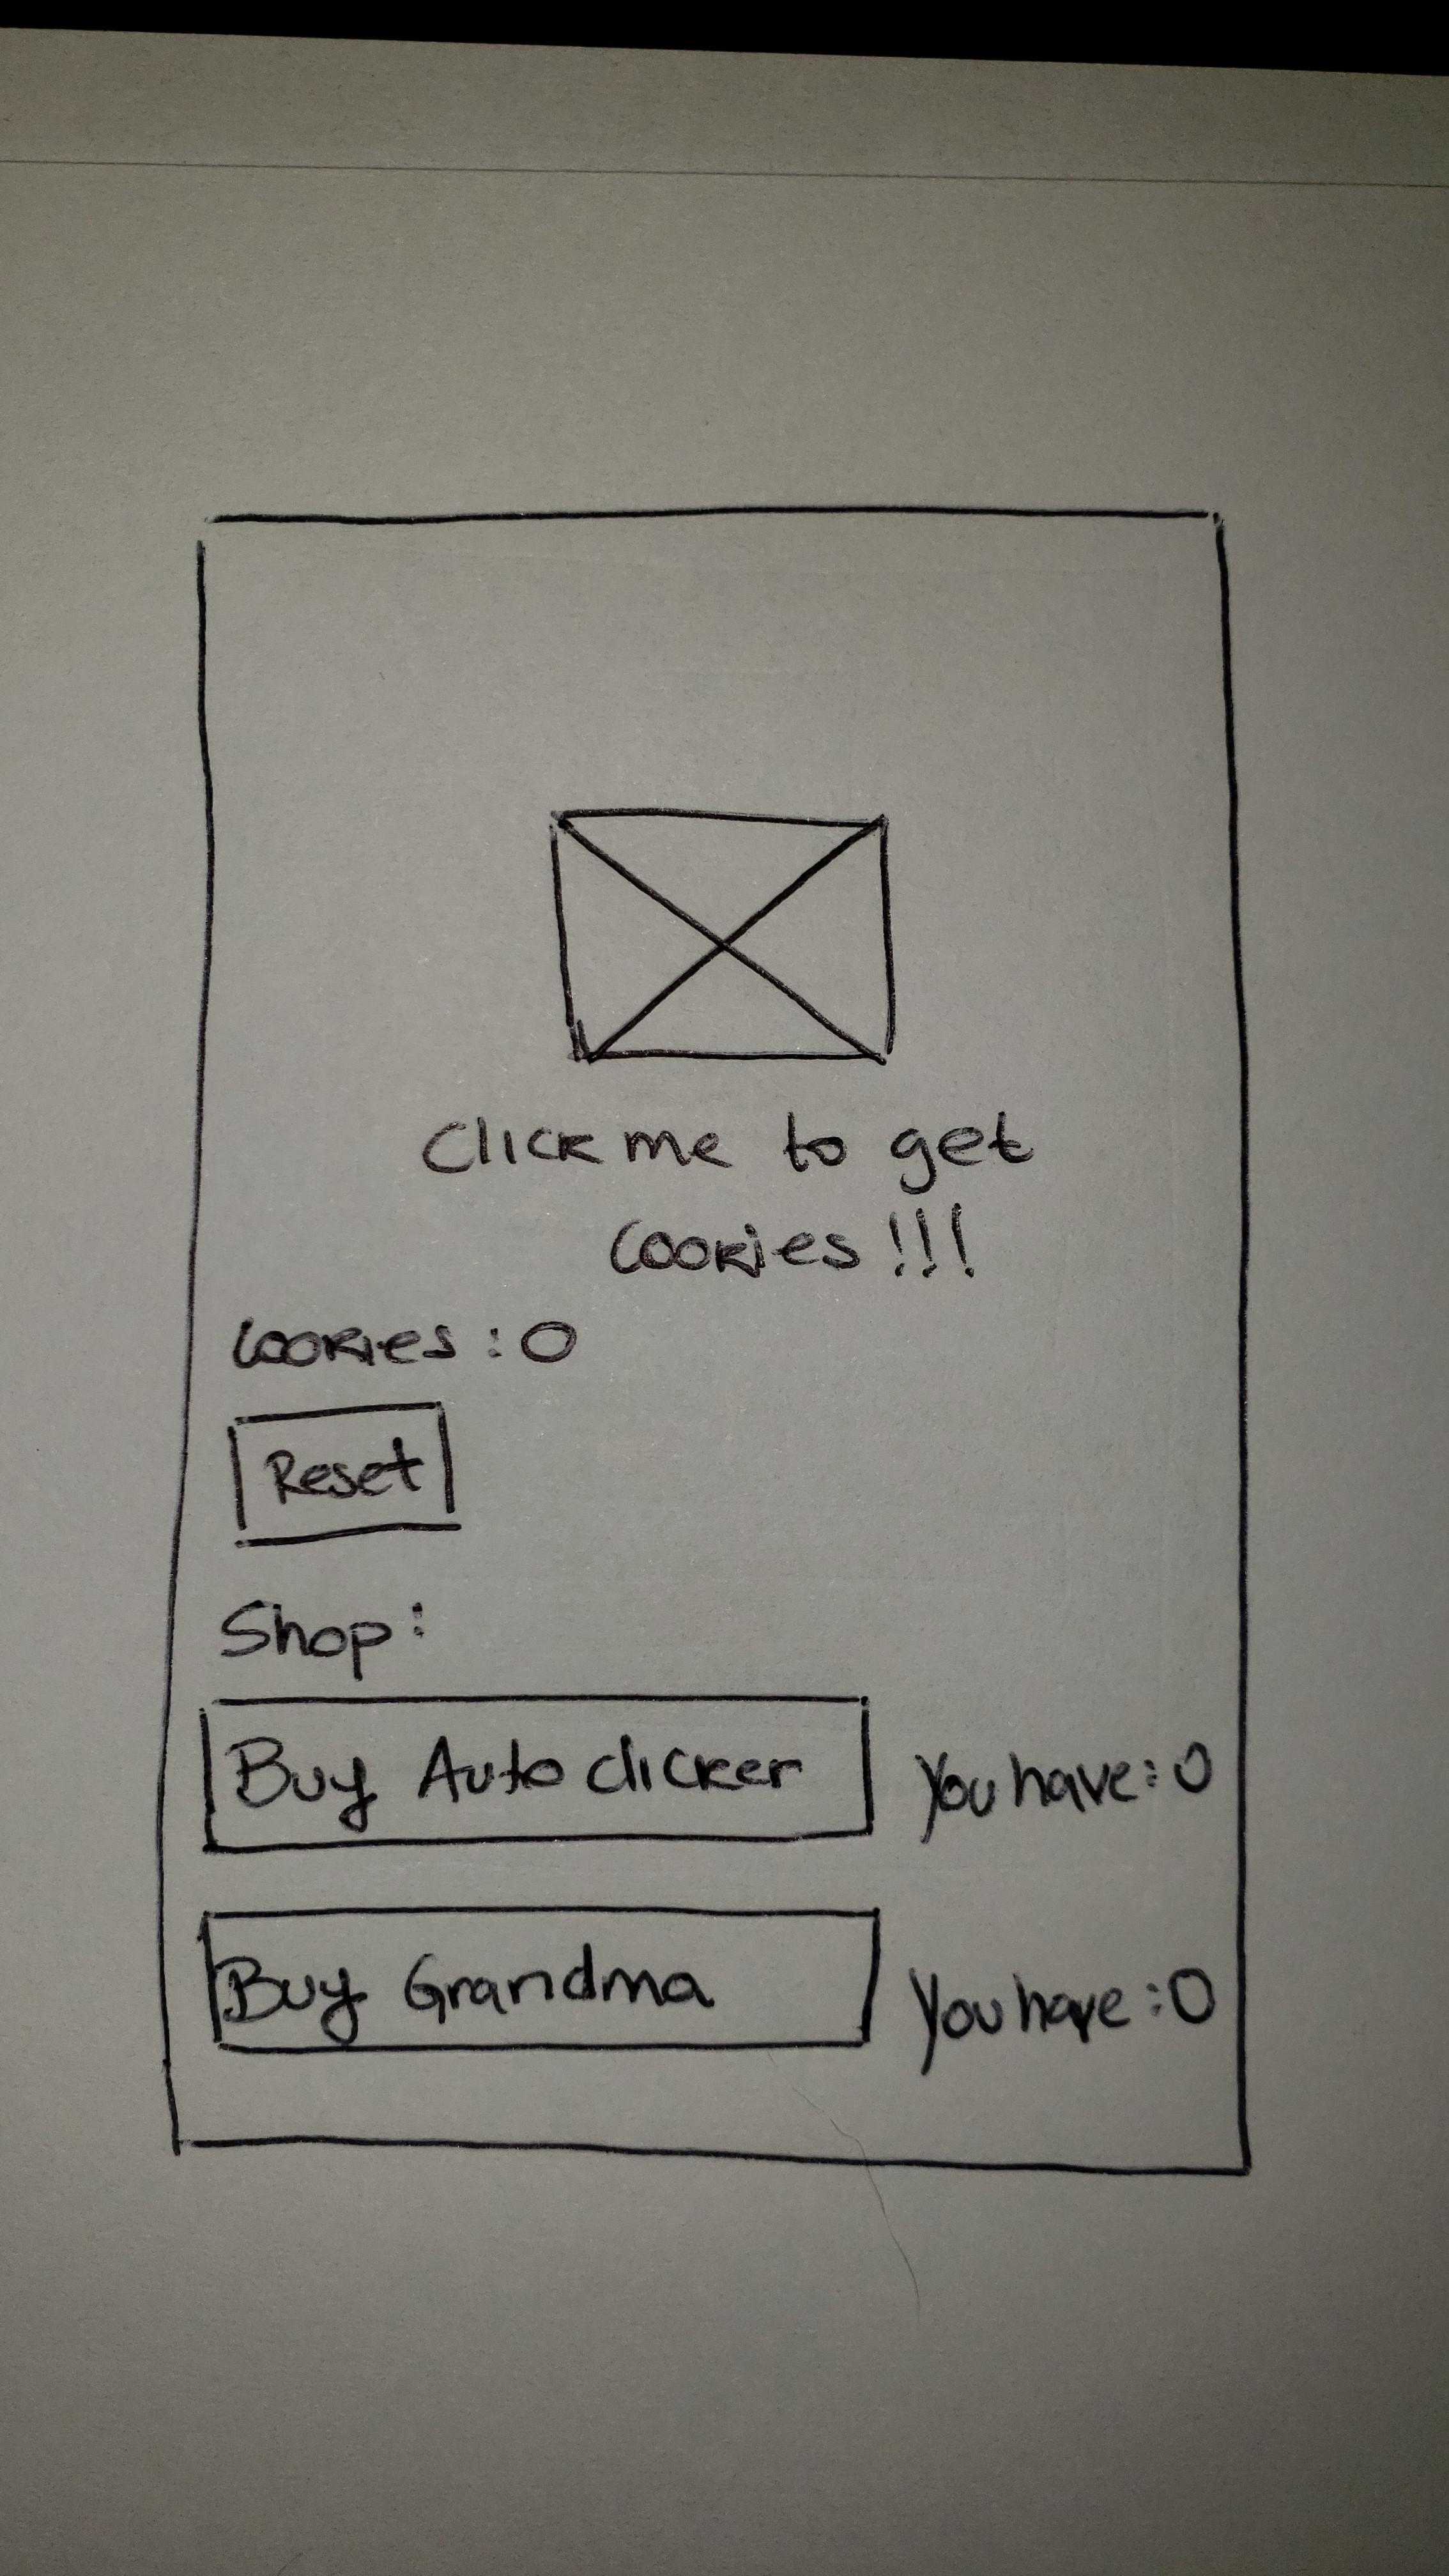 Click me to get
Cookies!!!
Cookies: 0
Reset
Shop:
Buy Auto clicker You have: 0
Buy Grandma You have: 0